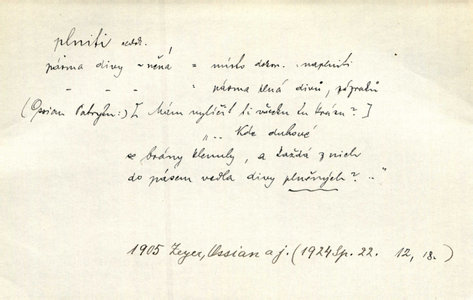 plniti nedok.
pásma divy -něná = místo dokon. naplniti
" - - - " pásma plná divů, zázraků
(Ossian Patrylu:) [ Mám vylíčit ti všecku tu krásu? ]
".. Kde duhové
se brány klenuly, a každá z nich
do pásem vedla divy plněných? .."
1905 Zeyer, Ossian a j. (1924 Sp. 22. 12, 18.)